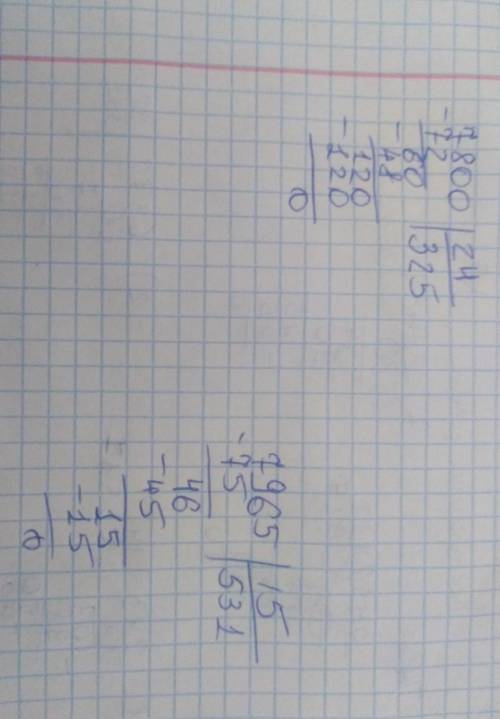 -7800 |24
72 |325
60
-48
120
-120
0
-7965 |15
75 |531
46
-45
15
-15
0